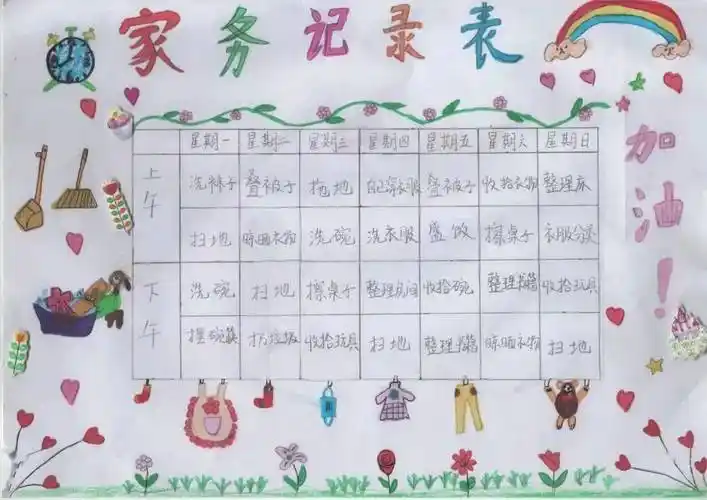 家务记录表
加油！
星期一 星期二 星期三 星期四 星期五 星期六 星期日
上午
洗袜子 叠被子 拖地 自己穿衣服 叠被子 收拾衣物 整理床
扫地 晾晒衣物 洗碗 洗衣服 盛饭 擦桌子 衣服分类
下午
洗碗 扫地 擦桌子 整理房间 收拾碗 整理书籍 收拾玩具
摆碗筷 扔垃圾 收拾玩具 扫地 整理书籍 晾晒衣物 扫地